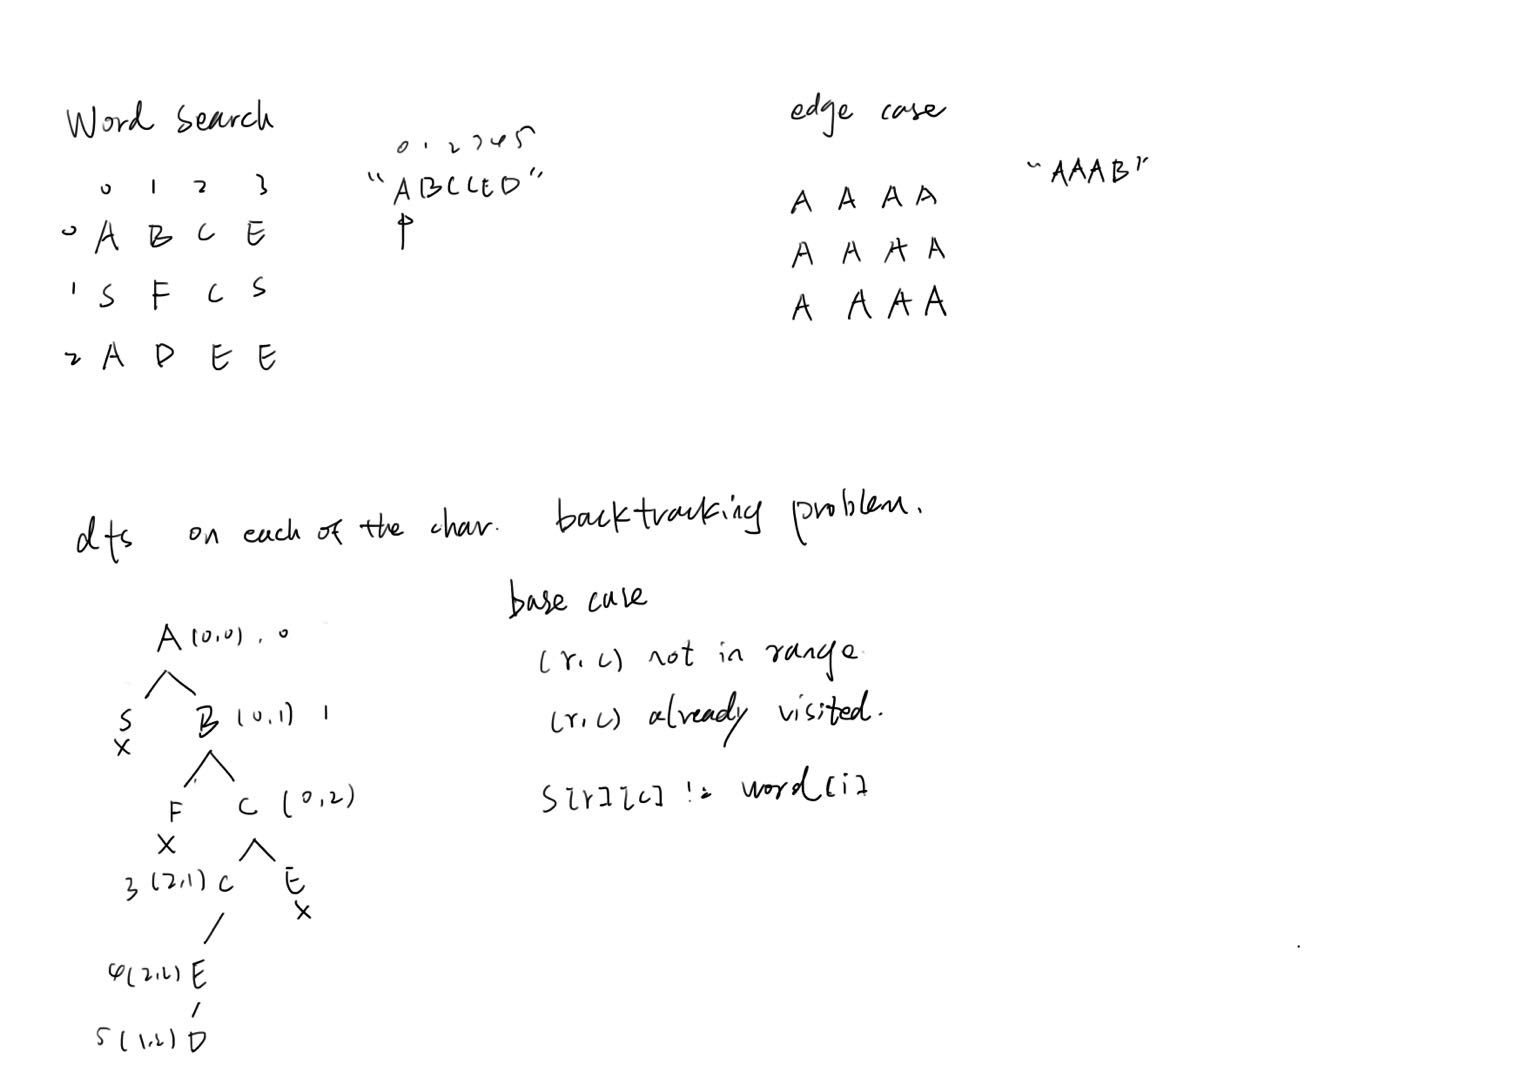 Word Search
0 1 2 3 4 5
"ABCCED"
0 1 2 3
0 A B C E
1 S F C S
2 A D E E
edge case
"AAAB"
A A A A
A A A A
A A A A
dfs on each of the char. backtracking problem.
A (0,0), 0
S B (0,1) 1
X
F C (0,2)
X
3 (2,1) C E
X
4 (2,2) E
5 (1,2) D
base case
(r, c) not in range.
(r, c) already visited.
S[r][c] != word[i]